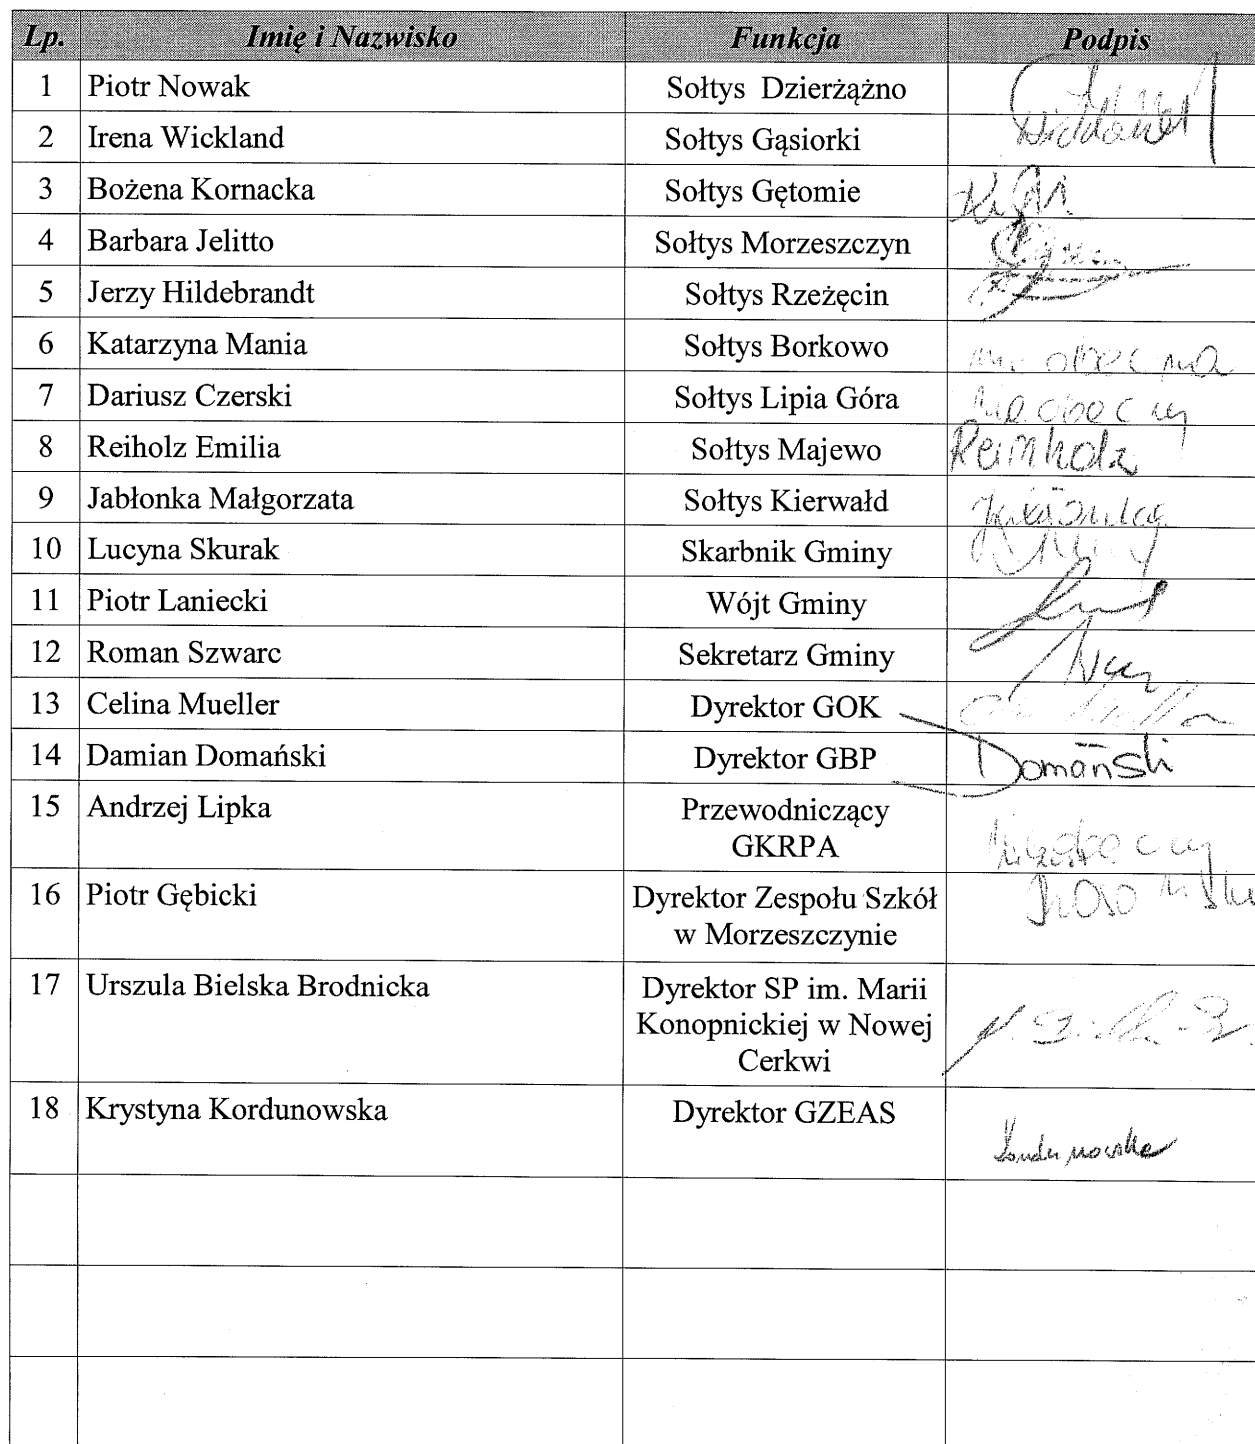 Lp. Imię i Nazwisko Funkcja Podpis
1 Piotr Nowak Sołtys Dzierżążno
2 Irena Wickland Sołtys Gąsiorki Wickland
3 Bożena Kornacka Sołtys Gętomie
4 Barbara Jelitto Sołtys Morzeszczyn
5 Jerzy Hildebrandt Sołtys Rzeżęcin
6 Katarzyna Mania Sołtys Borkowo nieobecna
7 Dariusz Czerski Sołtys Lipia Góra nieobecny
8 Reiholz Emilia Sołtys Majewo Reinholz
9 Jabłonka Małgorzata Sołtys Kierwałd
10 Lucyna Skurak Skarbnik Gminy
11 Piotr Laniecki Wójt Gminy
12 Roman Szwarc Sekretarz Gminy
13 Celina Mueller Dyrektor GOK
14 Damian Domański Dyrektor GBP Domański
15 Andrzej Lipka Przewodniczący
GKRPA nieobecny
16 Piotr Gębicki Dyrektor Zespołu Szkół
w Morzeszczynie
17 Urszula Bielska Brodnicka Dyrektor SP im. Marii
Konopnickiej w Nowej
Cerkwi
18 Krystyna Kordunowska Dyrektor GZEAS
Kordunowska